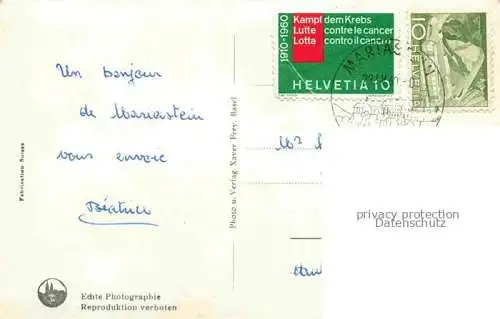 1910-1960
Kampf dem Krebs
Lutte contre le cancer
Lotta contro il cancro
HELVETIA 10
10
HELVETIA
MARIAST
Un bonjour
de Mariastein
vous envoie
Béatrice
Fabrication Suisse
Photo u. Verlag Xaver Frey, Basel
privacy protection
Datenschutz
Echte Photographie
Reproduktion verboten